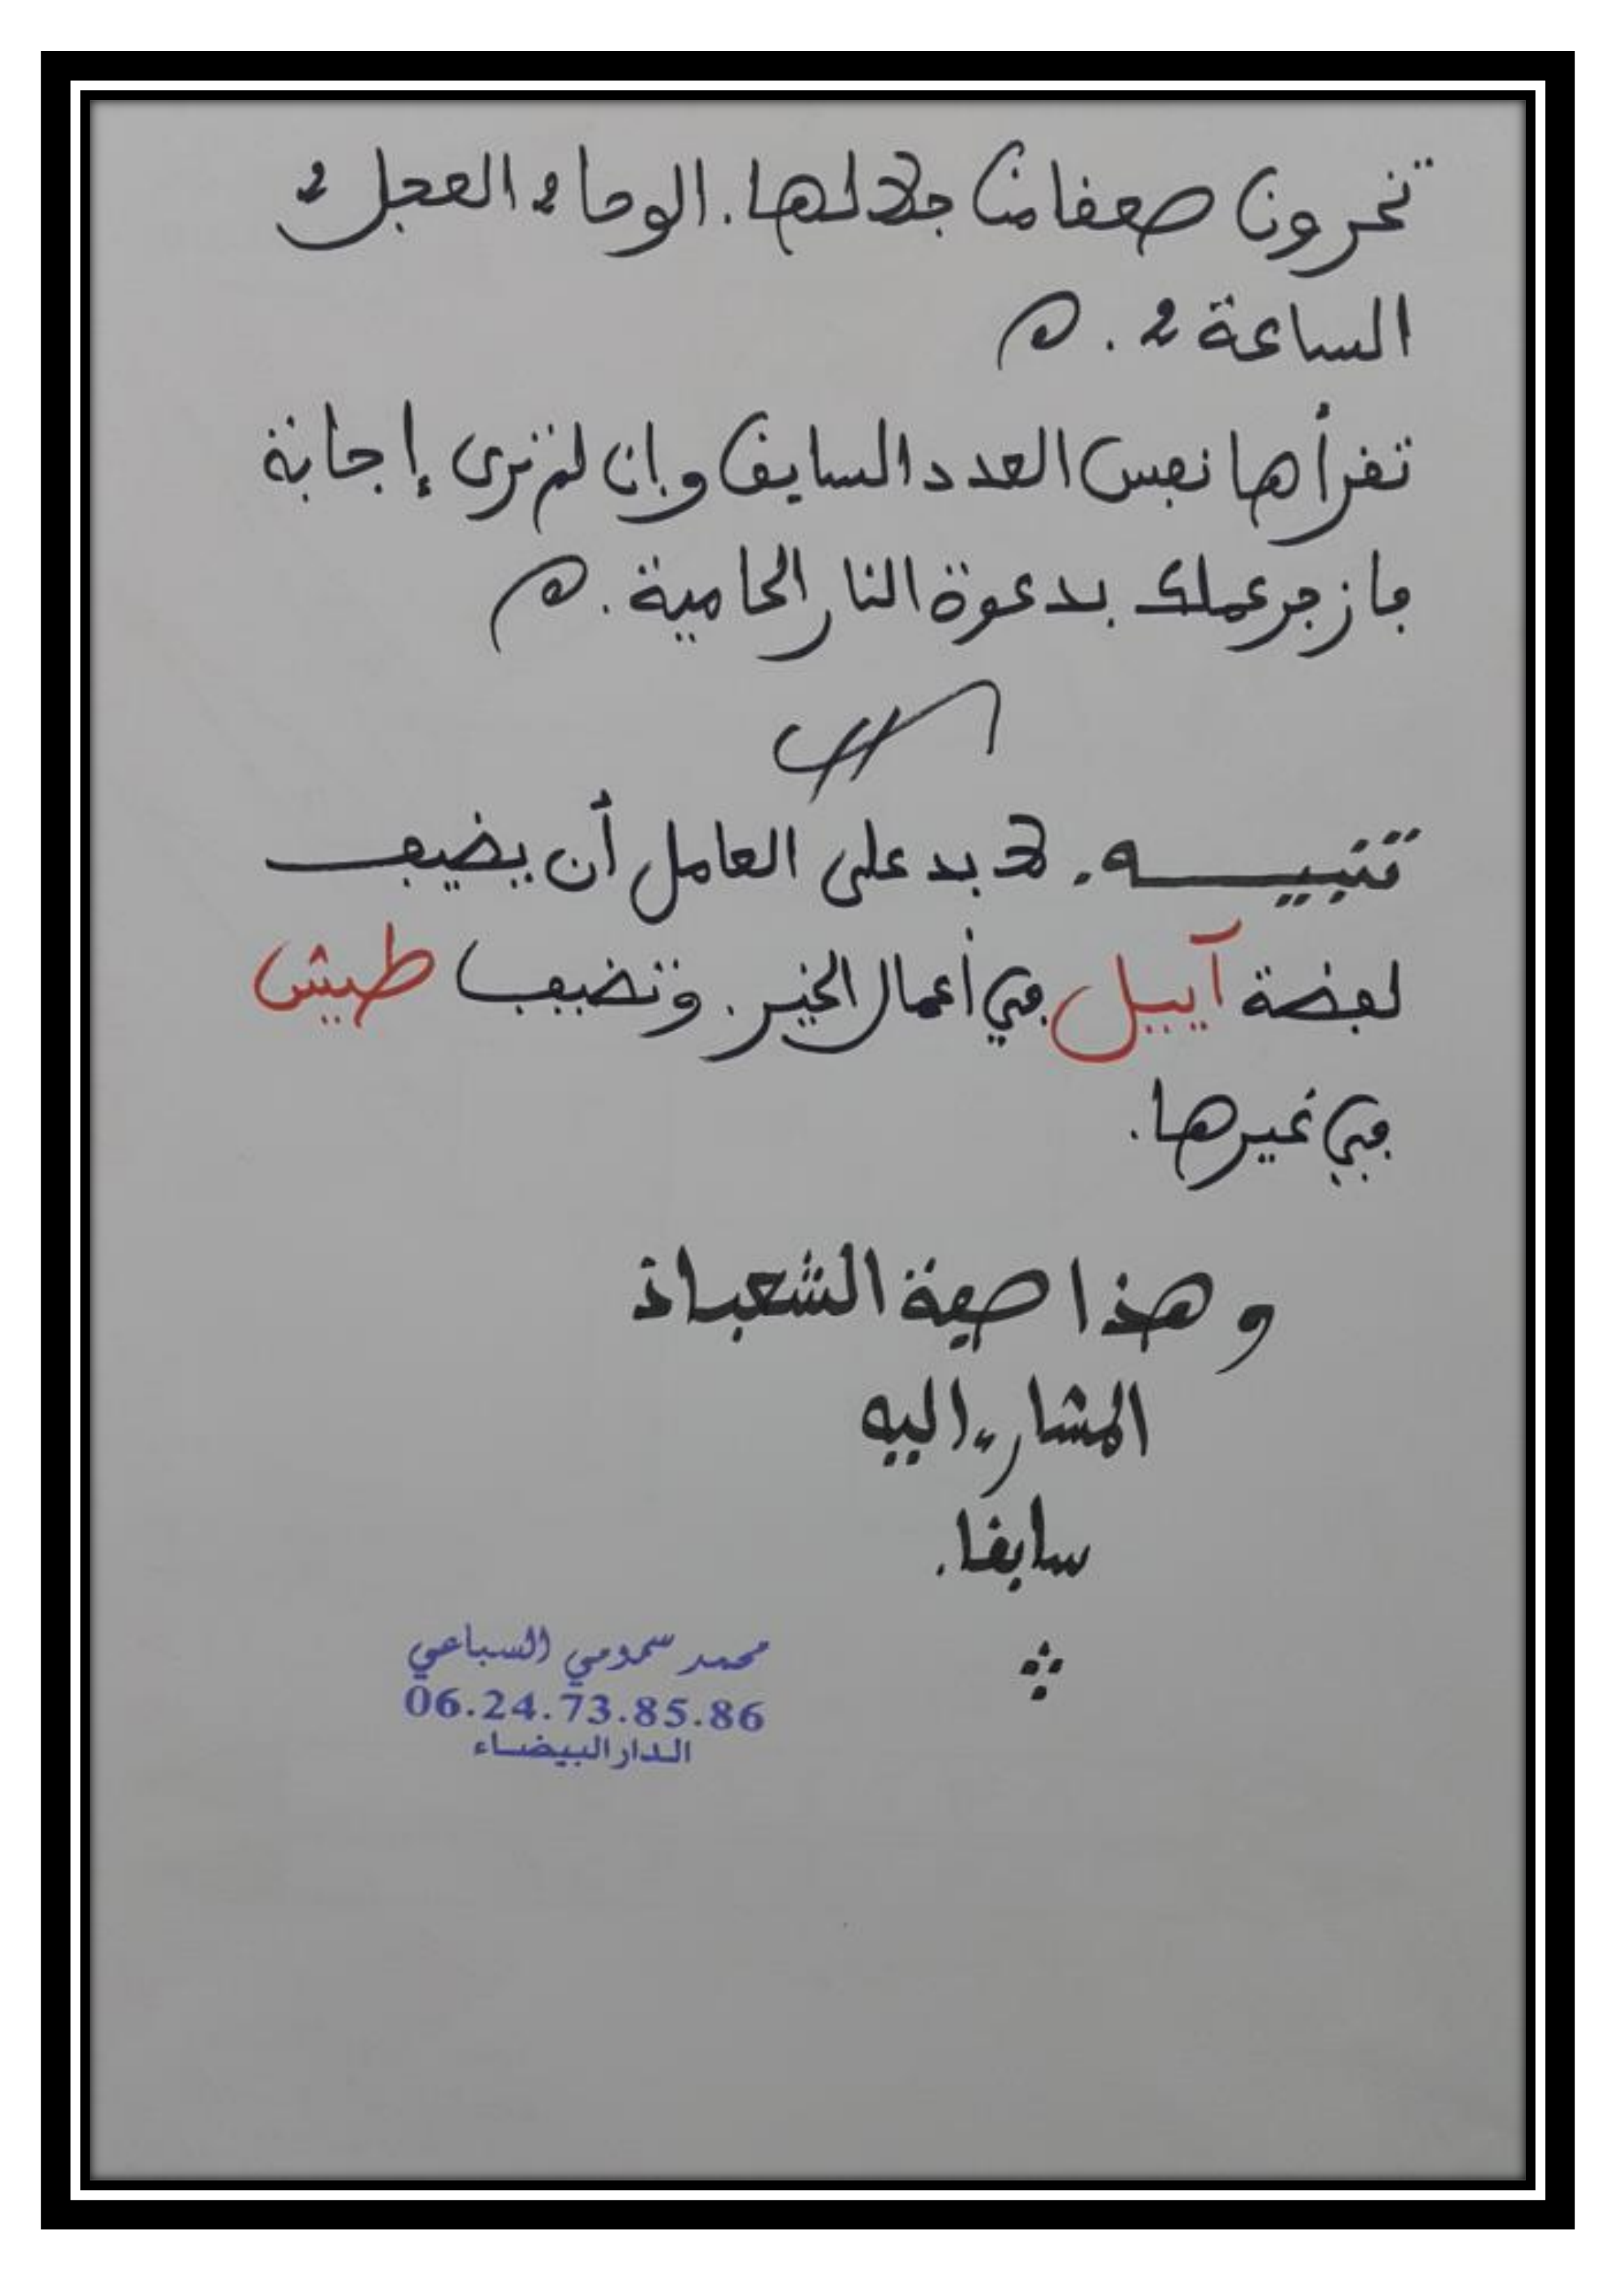 تخرون صعفا من جلالها. الوحا 2 العجل 2
الساعة 2. ه
تفرأها نفس العدد السابق وإن لم ترى إجابة
فازجر عملك بدعوة النار الحامية. ه
تنبيـــه. لا بد على العامل أن يضيف
لفضة آييل في أعمال الخير. وتضيف طيش
في غيرها.
وهذا صفة الشعباذ
المشار إليه
سابفا.
محمد سمومي السباعي
06.24.73.85.86
الدار البيضاء